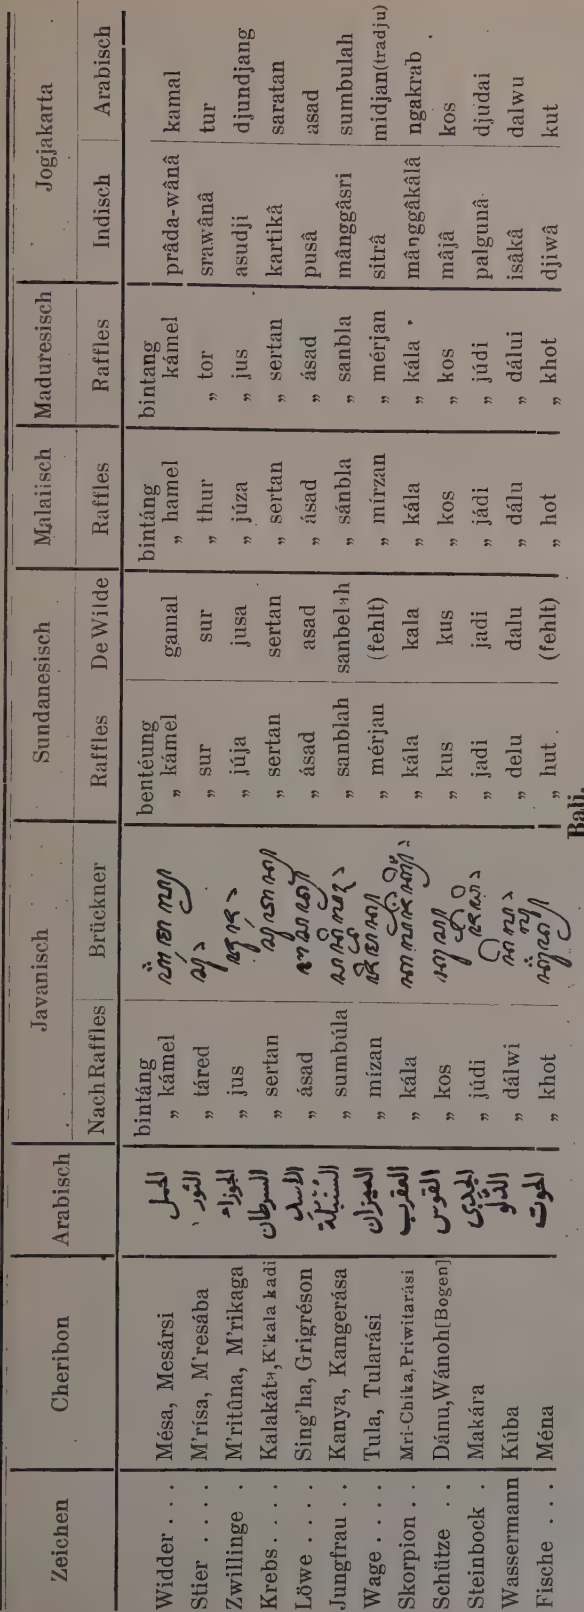 Zeichen Cheribon Arabisch Javanisch Sundanesisch Malaiisch Maduresisch Jogjakarta
Nach Raffles Brückner Raffles De Wilde Raffles Raffles Indisch Arabisch
bintáng bentéung bintáng bintang
Widder . . . Mésa, Mesársi الحمل „ kámel „ kámel gamal „ hamel kámel prâda-wânâ kamal
Stier . . . . M'rísa, M'resába الثور „ táred „ sur sur „ thur „ tor srawânâ tur
Zwillinge . M'ritûna, M'rikaga الجوزاء „ jus „ júja jusa „ júza „ jus asudji djundjang
Krebs . . . . Kalakáta, K'kala kadi السرطان „ sertan „ sertan sertan „ sertan „ sertan kartikâ saratan
Löwe . . . . Sing'ha, Grigréson الأسد „ ásad „ ásad asad „ ásad „ ásad pusâ asad
Jungfrau . . Kanya, Kangerása السنبلة „ sumbúla „ sanblah sanbelah „ sánbla „ sanbla mânggâsri sumbulah
Wage . . . . Tula, Tularási الميزان „ mízan „ mérjan (fehlt) „ mírzan „ mérjan sitrâ midjan(tradju)
Skorpion . . Mri-Chika,Priwitarási العقرب „ kála „ kála kala „ kála „ kála mânggâkâlâ ngakrab
Schütze . . Dánu,Wánoh[Bogen] القوس „ kos „ kus kus „ kos „ kos mâjâ kos
Steinbock . Makára الجدي „ júdi „ jadi jadi „ jádi „ júdi palgunâ djudai
Wassermann Kúba الدلو „ dálwi „ delu dalu „ dálu „ dálui isâkâ dalwu
Fische . . . Ména الحوت „ khot „ hut (fehlt) „ hot „ khot djiwâ kut
Bali.